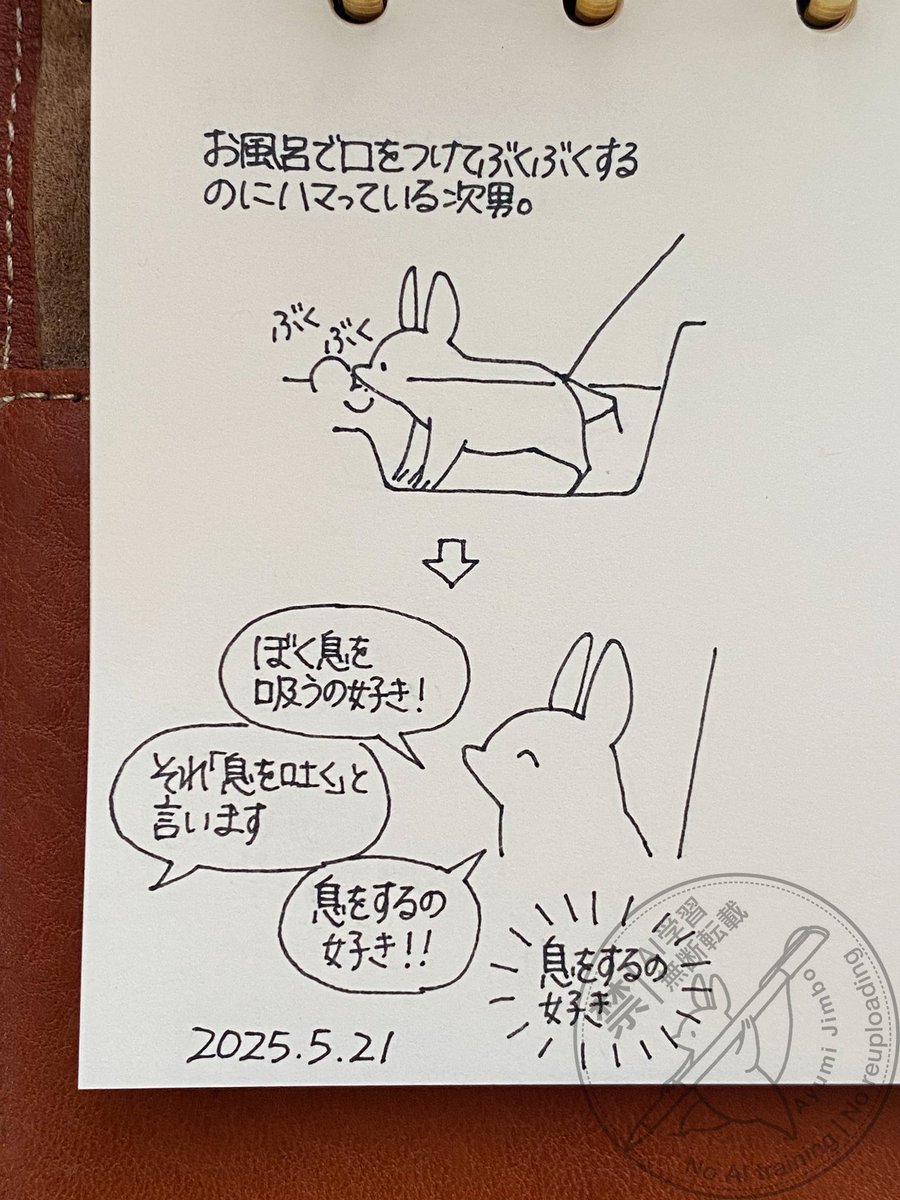 お風呂で口をつけてぶくぶくする
のにハマっている次男。
ぶく
ぶく
ぼく息を
吸うの好き!
それ「息を吐く」と
言います
息をするの
好き!!
息をするの
好き
2025.5.21
禁AI学習
無断転載
Ayumi Jimbo
No AI training | No reuploading